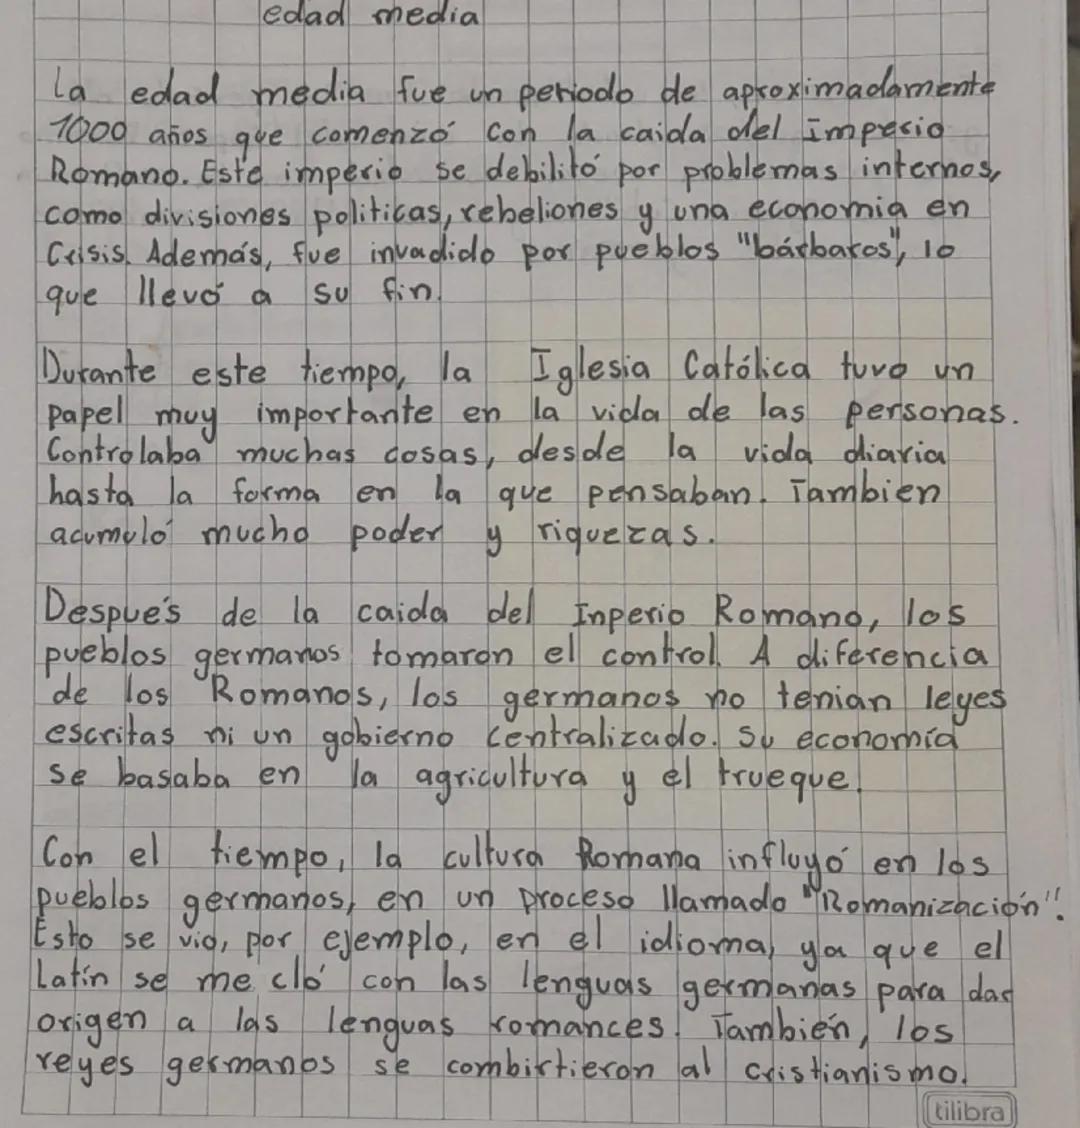 edad media
La edad media fue un periodo de aproximadamente
1000 años que comenzó con la caida del Imperio
Romano. Este imperio se debilitó por problemas internos,
como divisiones politicas, rebeliones y una economia en
Crisis. Además, fue invadido por pueblos "bárbaros", lo
que llevó a su fin.
Durante este tiempo, la Iglesia Católica tuvo un
papel muy importante en la vida de las personas.
Controlaba muchas cosas, desde la vida diaria
hasta la forma en la que pensaban. Tambien
acumuló mucho poder y riquezas.
Después de la caida del Inperio Romano, los
pueblos germanos tomaron el control. A diferencia
de los Romanos, los germanos no tenian leyes
escritas ni un gobierno centralizado. Su economía
se basaba en la agricultura y el trueque.
Con el tiempo, la cultura Romana influyó en los
pueblos germanos, en un proceso llamado "Romanización".
Esto se vio, por ejemplo, en el idioma, ya que el
Latín se me cló con las lenguas germanas para dar
origen a las lenguas romances. También, los
reyes germanos se combirtieron al cristianismo.
tilibra